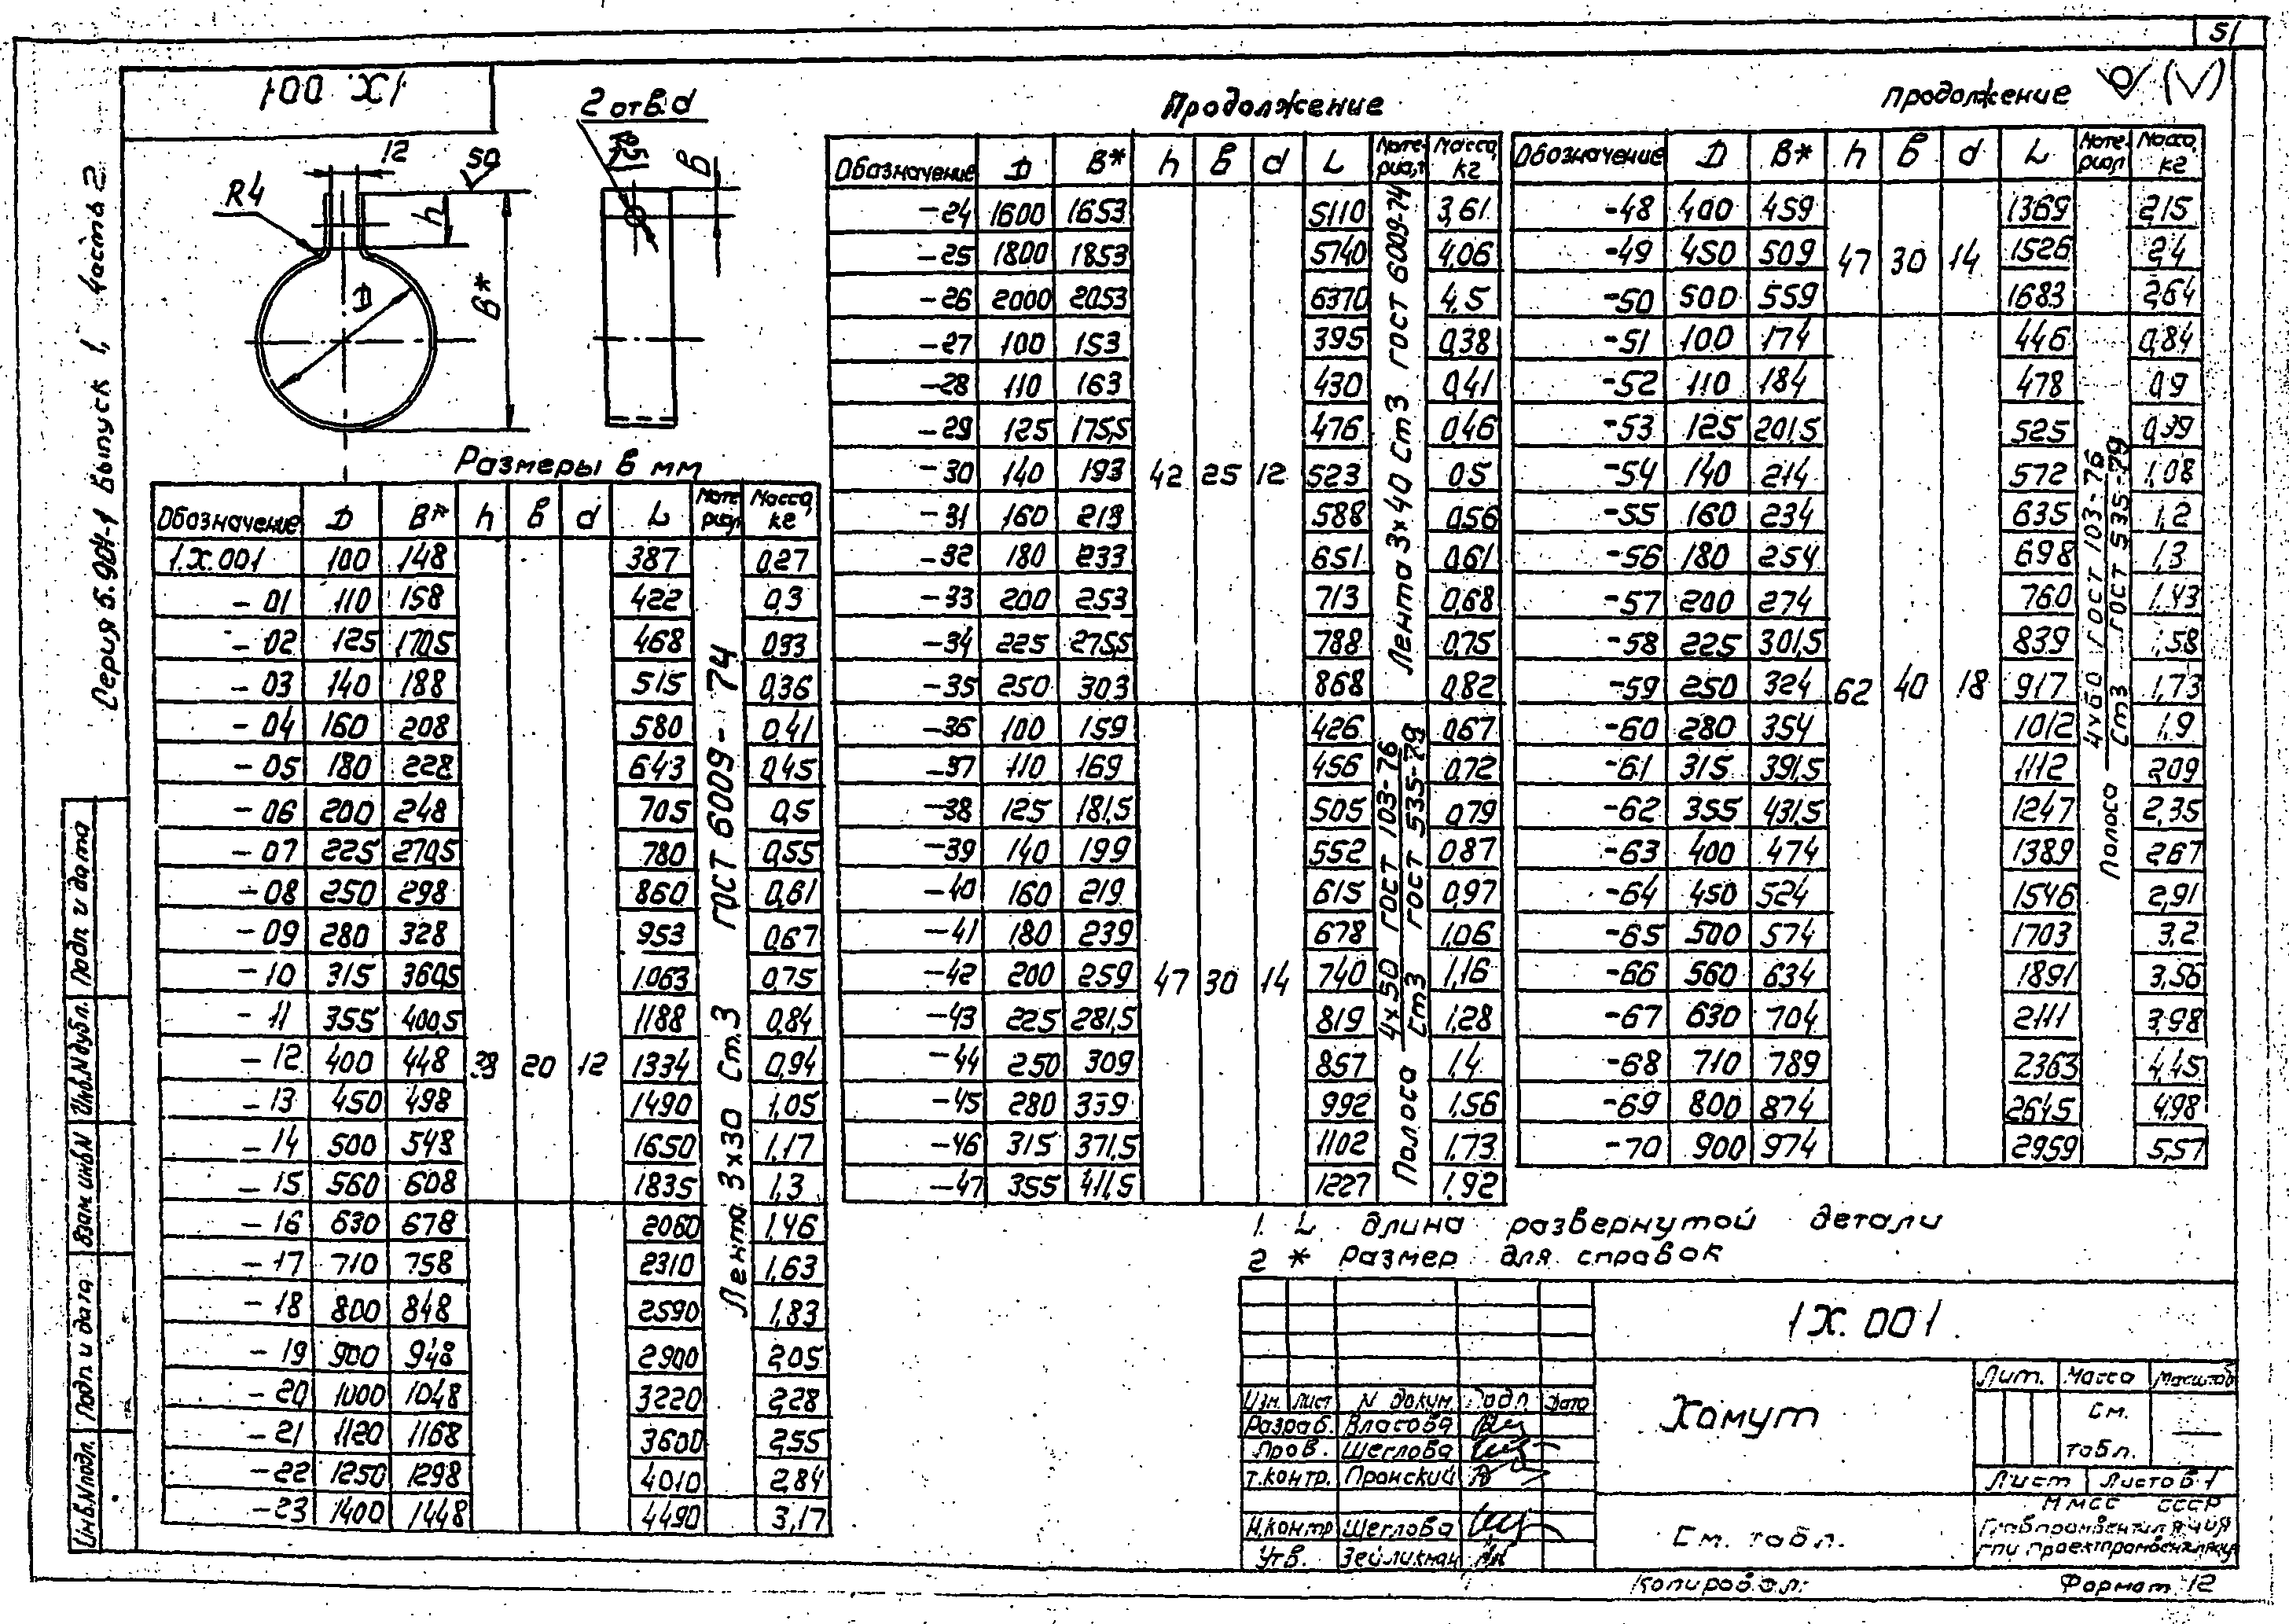 51
1X.001
Серия 5.904-1 Выпуск 1, Часть 2
2 отв. d
12
50
R4
h
B*
D
в
Размеры в мм
Обозначение D B* h в d L Материал Масса, кг
1.X.001 100 148 387 0,27
- 01 110 158 422 0,3
- 02 125 170,5 468 0,33
- 03 140 188 515 0,36
- 04 160 208 580 0,41
- 05 180 228 643 0,45
- 06 200 248 705 0,5
- 07 225 270,5 780 0,55
- 08 250 298 860 0,61
- 09 280 328 953 0,67
- 10 315 360,5 1063 0,75
- 11 355 400,5 1188 0,84
- 12 400 448 38 20 12 1334 0,94
- 13 450 498 1490 1,05
- 14 500 548 1650 1,17
- 15 560 608 1835 1,3
- 16 630 678 2060 1,46
- 17 710 758 2310 1,63
- 18 800 848 2590 1,83
- 19 900 948 2900 2,05
- 20 1000 1048 3220 2,28
- 21 1120 1168 3600 2,55
- 22 1250 1298 4010 2,84
- 23 1400 1448 4490 3,17
Лента 3х30 Ст.3 ГОСТ 6009-74
Продолжение
Обозначение D B* h в d L Материал Масса, кг
-24 1600 1653 5110 3,61
-25 1800 1853 5740 4,06
-26 2000 2053 6370 4,5
-27 100 153 395 0,38
-28 110 163 430 0,41
-29 125 175,5 476 0,46
-30 140 193 42 25 12 523 0,5
-31 160 213 588 0,56
-32 180 233 651 0,61
-33 200 253 713 0,68
-34 225 275,5 788 0,75
-35 250 303 868 0,82
Лента 3х40 Ст3 ГОСТ 6009-74
-36 100 159 426 0,67
-37 110 169 456 0,72
-38 125 181,5 505 0,79
-39 140 199 552 0,87
-40 160 219 615 0,97
-41 180 239 678 1,06
-42 200 259 47 30 14 740 1,16
-43 225 281,5 819 1,28
-44 250 309 857 1,4
-45 280 339 992 1,56
-46 315 371,5 1102 1,73
-47 355 411,5 1227 1,92
Полоса 4х50 ГОСТ 103-76
Ст3 ГОСТ 535-79
Продолжение
Обозначение D B* h в d L Материал Масса, кг
-48 400 459 1369 2,15
-49 450 509 47 30 14 1526 2,4
-50 500 559 1683 2,64
-51 100 174 446 0,84
-52 110 184 478 0,9
-53 125 201,5 525 0,99
-54 140 214 572 1,08
-55 160 234 635 1,2
-56 180 254 698 1,3
-57 200 274 760 1,43
-58 225 301,5 839 1,58
-59 250 324 62 40 18 917 1,73
-60 280 354 1012 1,9
-61 315 391,5 1112 2,09
-62 355 431,5 1247 2,35
-63 400 474 1389 2,67
-64 450 524 1546 2,91
-65 500 574 1703 3,2
-66 560 634 1891 3,56
-67 630 704 2111 3,98
-68 710 789 2363 4,45
-69 800 874 2645 4,98
-70 900 974 2959 5,57
Полоса 4х60 ГОСТ 103-76
Ст3 ГОСТ 535-79
1. L длина развернутой детали
2 * Размер для справок
1X.001
Хомут
Лит. Масса Масштаб
См. табл. —
Лист Листов 1
Изм. Лист N докум. Подп. Дата
Разраб. Власова
Пров. Щеглова
Т.контр. Пронский
Н.контр Щеглова
Утв. Зейликман
См. табл.
ММСС СССР
Главпромвентиляция
ГПИ Проектпромвентиляция
Копировал:
Формат 12
Подп. и дата
Инв.N дубл.
Взам инв.N
Подп и дата
Инв.N подл.